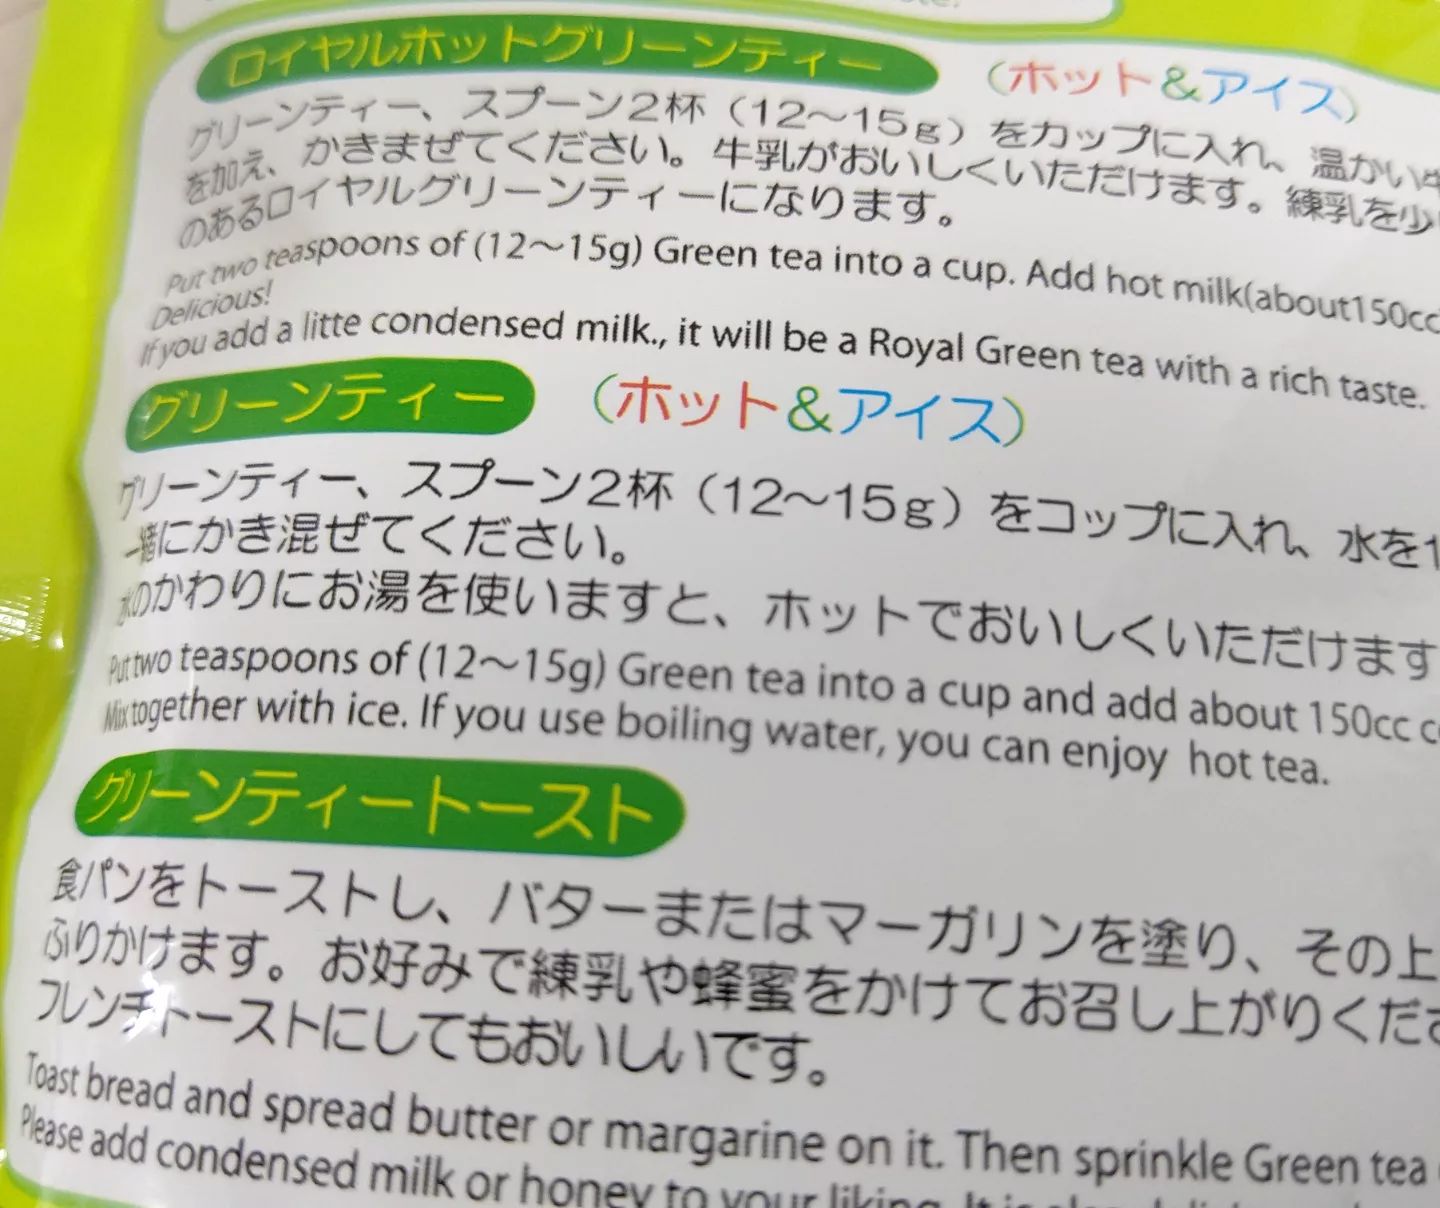 ロイヤルホットグリーンティー （ホット&アイス）
グリーンティー、スプーン2杯（12〜15g）をカップに入れ、温かい牛
を加え、かきまぜてください。牛乳がおいしくいただけます。練乳を少し
のあるロイヤルグリーンティーになります。
Put two teaspoons of (12〜15g) Green tea into a cup. Add hot milk(about150cc
Delicious!
If you add a litte condensed milk., it will be a Royal Green tea with a rich taste.
グリーンティー （ホット&アイス）
グリーンティー、スプーン2杯（12〜15g）をコップに入れ、水を1
一緒にかき混ぜてください。
水のかわりにお湯を使いますと、ホットでおいしくいただけます
Put two teaspoons of (12〜15g) Green tea into a cup and add about 150cc
Mix together with ice. If you use boiling water, you can enjoy hot tea.
グリーンティートースト
食パンをトーストし、バターまたはマーガリンを塗り、その上
ふりかけます。お好みで練乳や蜂蜜をかけてお召し上がりくださ
フレンチトーストにしてもおいしいです。
Toast bread and spread butter or margarine on it. Then sprinkle Green tea
Please add condensed milk or honey to your liking. It is also